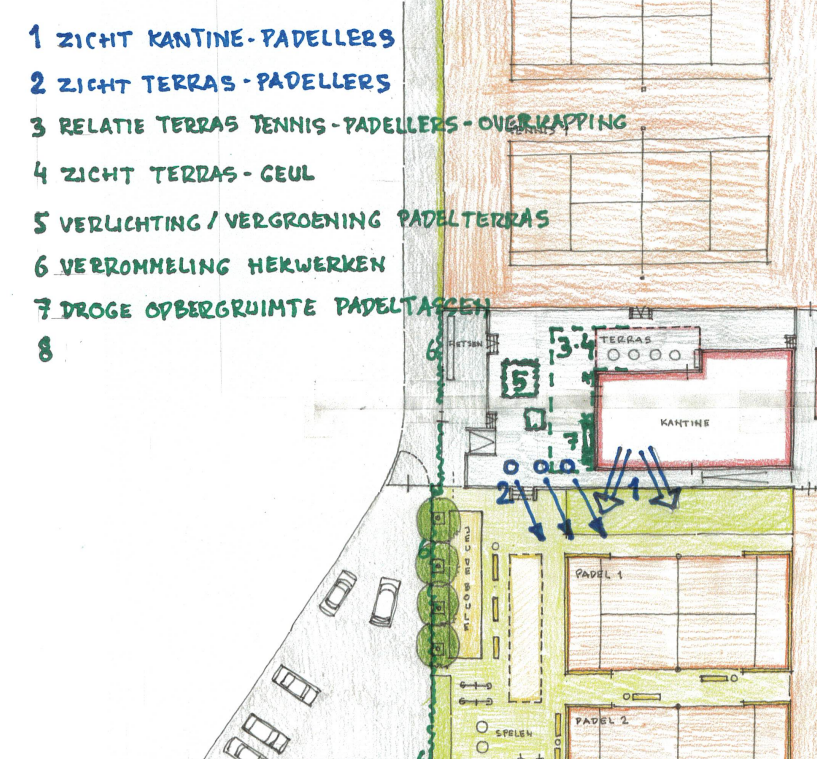 1 ZICHT KANTINE-PADELLERS
2 ZICHT TERRAS-PADELLERS
3 RELATIE TERRAS TENNIS-PADELLERS-OVERKAPPING
TENNIS 1
4 ZICHT TERRAS-GEUL
5 VERLICHTING/VERGROENING PADELTERRAS
6 VERROMMELING HEKWERKEN
7 DROGE OPBERGRUIMTE PADELTASSEN
8
6
FIETSEN
3.4
TERRAS
5
KANTINE
7
2
1
JEU DE BOULE
6
PADEL 1
PADEL 2
SPELEN